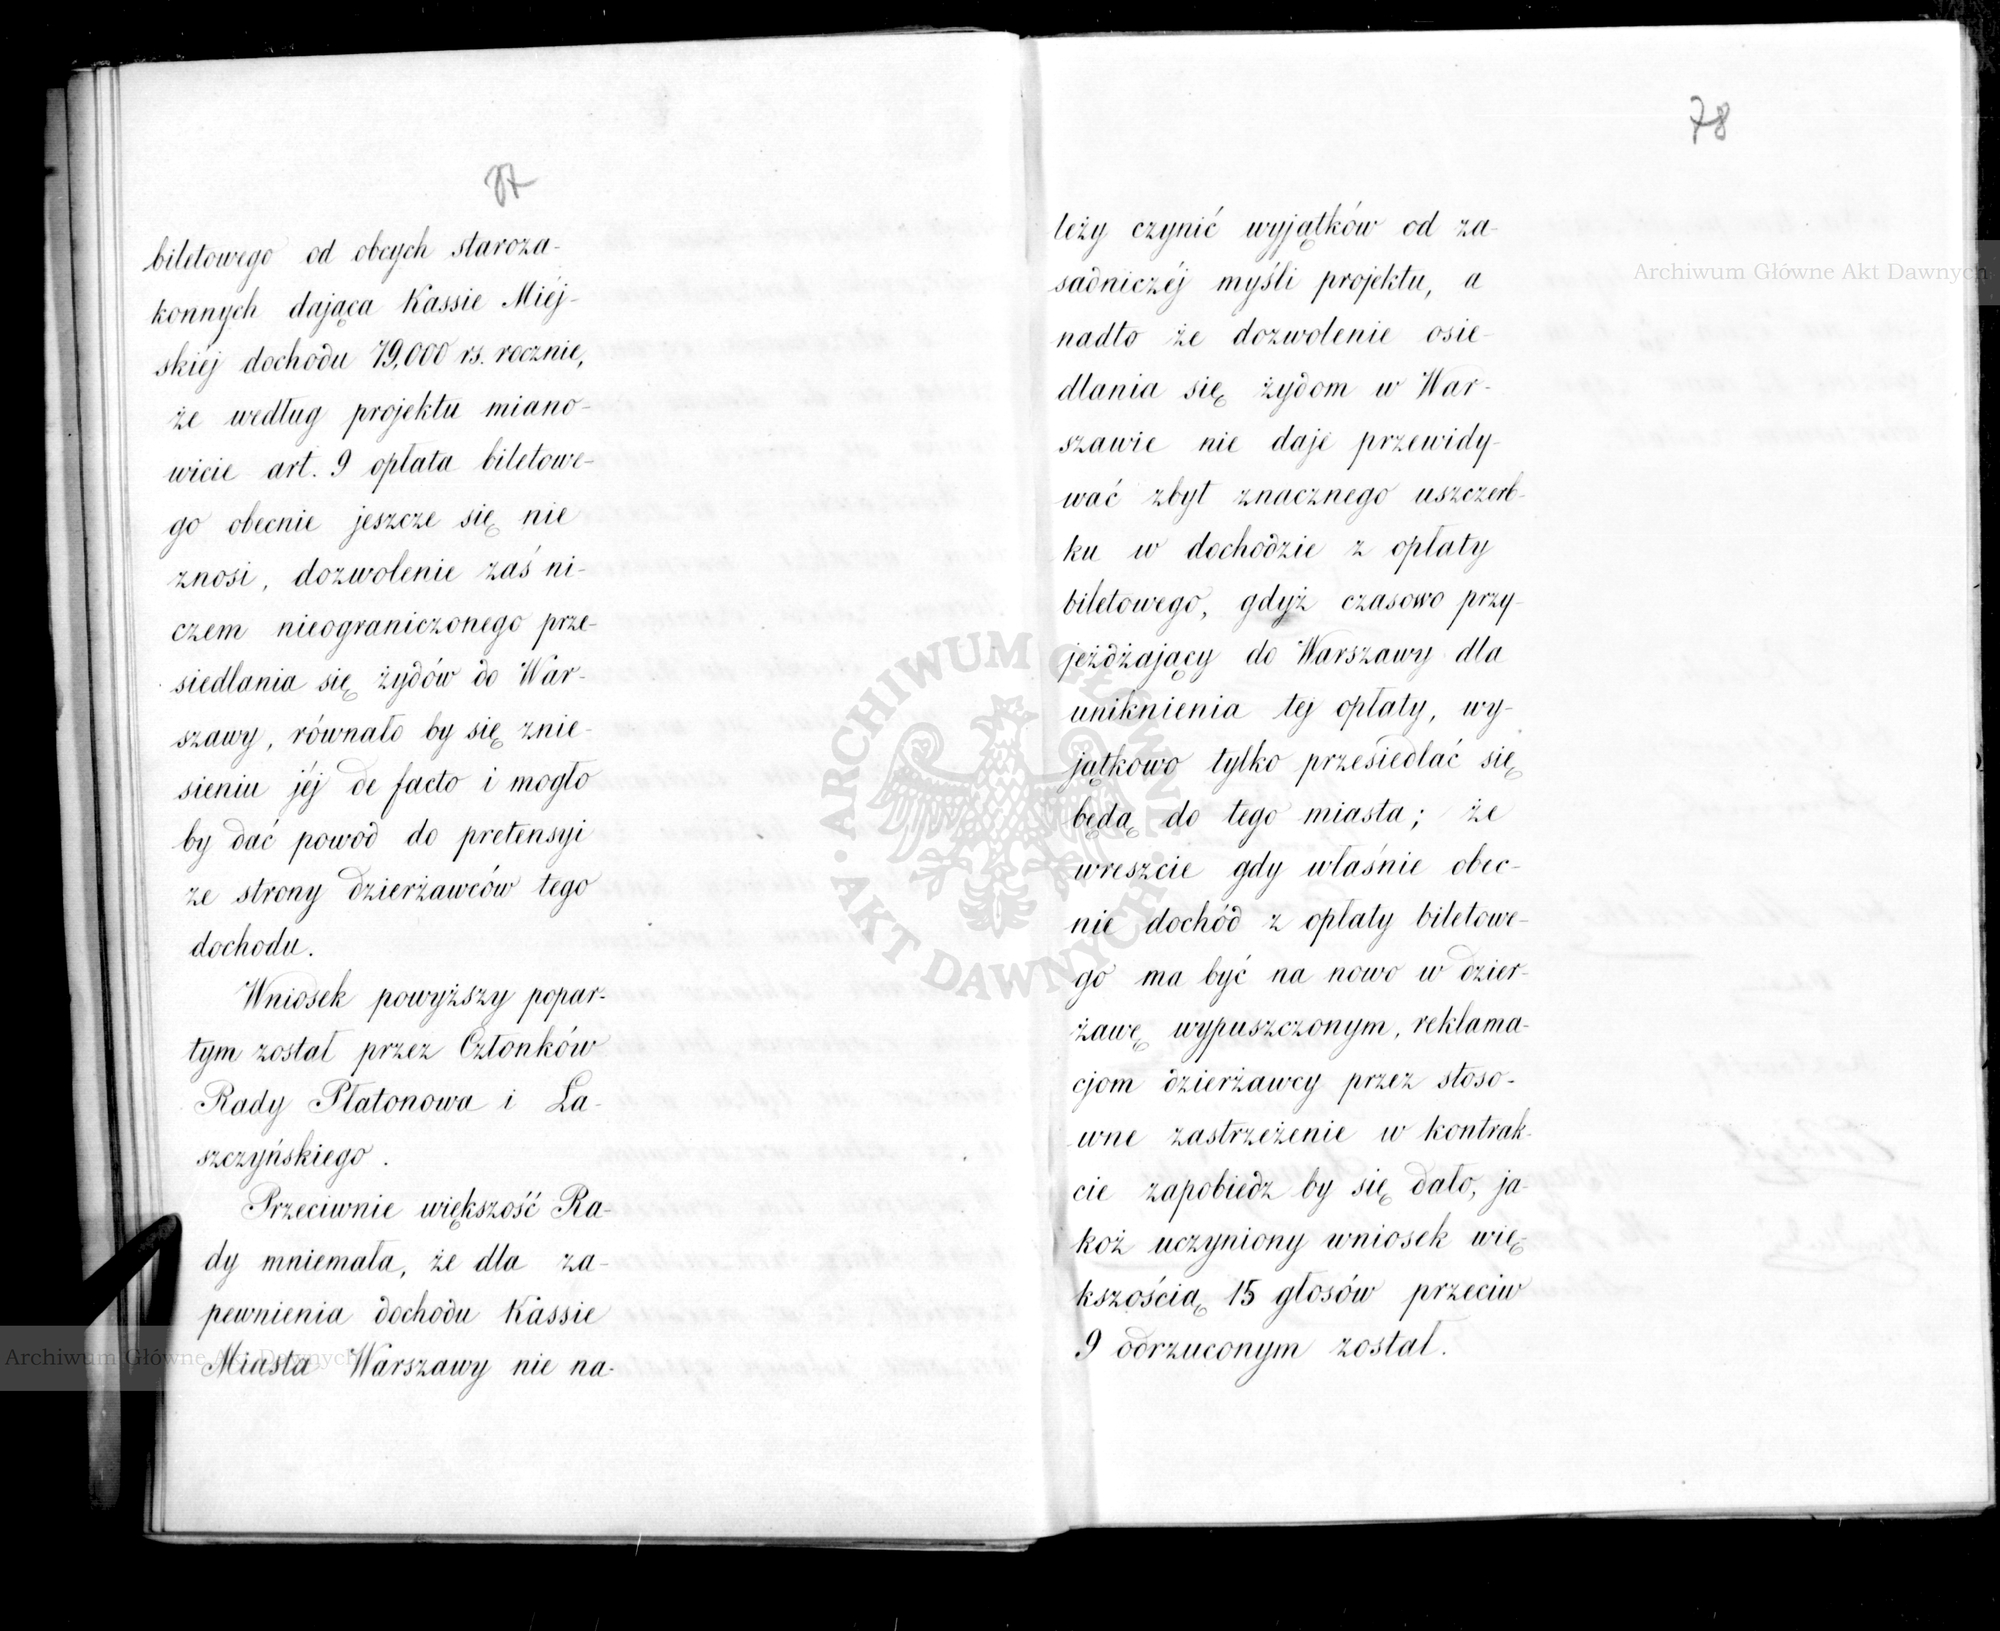 77
biletowego od obcych staroza-
konnych dająca Kassie Miéj-
skiéj dochodu 79,000 rs. rocznie,
że według projektu miano-
wicie art. 9 opłata biletowe-
go obecnie jeszcze się nie
znosi, dozwolenie zaś ni-
czem nieograniczonego prze-
siedlania się żydów do War-
szawy, równało by się znie-
sieniu jéj de facto i mogło
by dać powod do pretensyi
ze strony dzierżawców tego
dochodu.
Wniosek powyższy popar-
tym został przez Członków
Rady Płatonowa i Ła-
szczyńskiego.
Przeciwnie większość Ra-
dy mniemała, że dla za-
pewnienia dochodu Kassie
Miasta Warszawy nie na-
78
leży czynić wyjątków od za-
sadniczéj myśli projektu, a
nadto że dozwolenie osie-
dlania się żydom w War-
szawie nie daje przewidy-
wać zbyt znacznego uszczerb-
ku w dochodzie z opłaty
biletowego, gdyż czasowo przy-
jeżdżający do Warszawy dla
uniknienia tej opłaty, wy-
jątkowo tylko przesiedlać się
będą do tego miasta; że
wreszcie gdy właśnie obec-
nie dochód z opłaty biletowe-
go ma być na nowo w dzier-
żawę wypuszczonym, reklama-
cjom dzierżawcy przez stoso-
wne zastrzeżenie w kontrak-
cie zapobiedz by się dało, ja-
koż uczyniony wniosek wię-
kszością 15 głosów przeciw
9 odrzuconym został.
Archiwum Główne Akt Dawnych
Archiwum Główne Akt Dawnych
ARCHIWUM GŁÓWNE · AKT DAWNYCH ·